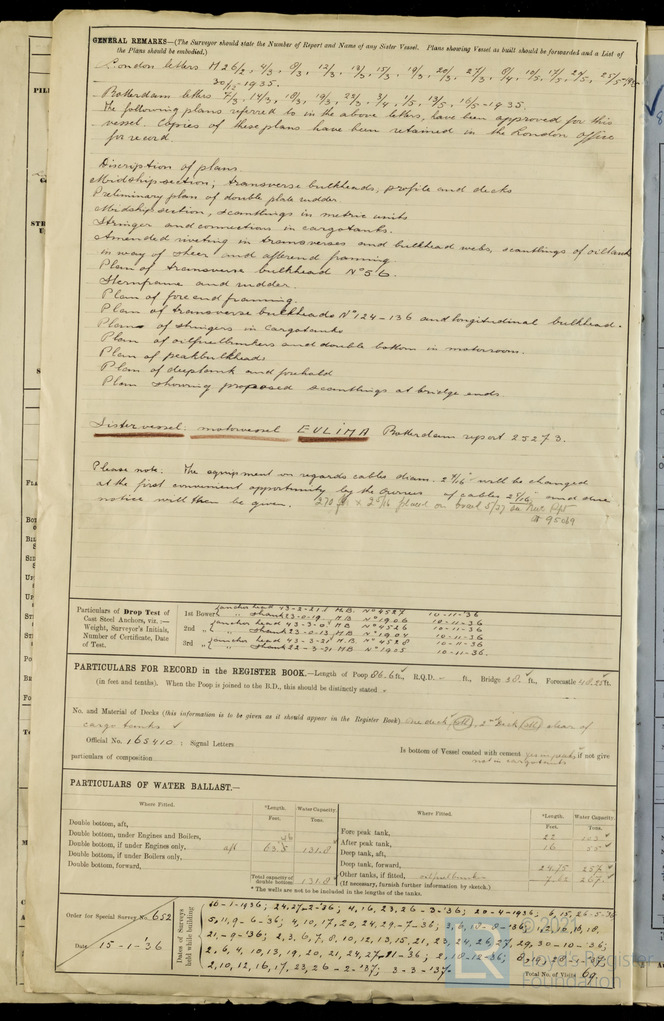 GENERAL REMARKS—(The Surveyor should state the Number of Report and Name of any Sister Vessel. Plans showing Vessel as built should be forwarded and a List of
the Plans should be embodied.)
London letters M 26/2, 4/3,
30/12-1935.
Rotterdam letters 7/3, 14/3, 18/3, 19/3, 23/3, 3/4, 1/5, 13/5, 16/5-1935.
The following plans referred to in the above letters, have been approved for this
vessel. Copies of these plans have been retained in the London Office
for record.
Discription of plans
Midshipsection, transverse bulkheads, profile and decks
Preliminary plan of double plate rudder.
Midshipsection, scantlings in metric units
Stringer and connections in cargotanks.
Amended riveting in transverses and bulkhead webs, scantlings of oiltank
in way of sheer and afterend framing.
Plan of transverse bulkhead No 56.
Sternframe and rudder.
Plan of fore end framing.
Plan of transverse bulkheads No 124-136 and longitudinal bulkhead.
Plan of stringers in cargotanks
Plan of oilfuelbunkers and double bottom in motorroom.
Plan of peakbulkheads
Plan of deeptank and forehold
Plan showing proposed scantlings at bridge ends.
Sister vessel: motorvessel EULIMA Rotterdam report 25273.
Please note. The equipment as regards cables diam. 2 7/16" will be changed
at the first convenient opportunity by the Owners of cables and due
notice will then be given. 270 placed on board 5/37
95089
Particulars of Drop Test of
Cast Steel Anchors, viz.:—
Weight, Surveyor's Initials,
Number of Certificate, Date
of Test.
1st Bower anchor head 43-2-21 M.B. No 4527 10-11-36
" shank 23-0-19 M.B. No 1906 10-11-36
2nd " anchor head 43-3-0 M.B. No 4526 10-11-36
" shank 23-0-13 M.B. No 1904 10-11-36
3rd " anchor head 43-3-21 M.B. No 4528 10-11-36
" shank 22-3-21 M.B. No 1905 10-11-36.
PARTICULARS FOR RECORD in the REGISTER BOOK.—Length of Poop 86.6 ft., R.Q.D. - ft., Bridge 38. ft., Forecastle 48.25 ft.
(in feet and tenths). When the Poop is joined to the B.D., this should be distinctly stated
No. and Material of Decks (this information is to be given as it should appear in the Register Book) One deck (stl), 2nd Deck (stl) clear of
cargo tanks
Official No. 165410; Signal Letters
Is bottom of Vessel coated with cement yes in peaks, if not give
particulars of composition not in cargotanks
PARTICULARS OF WATER BALLAST.—
Where Fitted. *Length. Water Capacity.
Feet. Tons.
Double bottom, aft,
Double bottom, under Engines and Boilers,
Double bottom, if under Engines only, aft 63.5 131.8
Double bottom, if under Boilers only,
Double bottom, forward,
Total capacity of double bottom 131.8
Where Fitted. *Length. Water Capacity.
Feet. Tons.
Fore peak tank, 22 103
After peak tank, 16 55
Deep tank, aft,
Deep tank, forward, 24.75 257
Other tanks, if fitted, oilfuelbunker 7.62 267
(If necessary, furnish further information by sketch.)
* The wells are not to be included in the lengths of the tanks.
Order for Special Survey No. 652
Date 15-1-'36
Dates of Surveys
held while building
10-1-1936; 24, 27-2-36; 4, 16, 23, 26-3-'36; 20-4-1936; 6, 15, 26-5-36
5, 11, 9-6-36; 4, 10, 17, 20, 24, 29-7-36;
21-9-'36; 2, 3, 6, 7, 8, 10, 12, 13, 15, 21, 23, 24, 26, 27, 29, 30-10-'36;
2, 6, 4, 10, 13, 19, 20, 21, 24, 27-11-36; 2, 10-12-36;
2, 10, 12, 16, 17, 23, 26-2-'37; 3-3-'37.
Total No. of Visits 69
© 2021
Lloyd's Register
Foundation